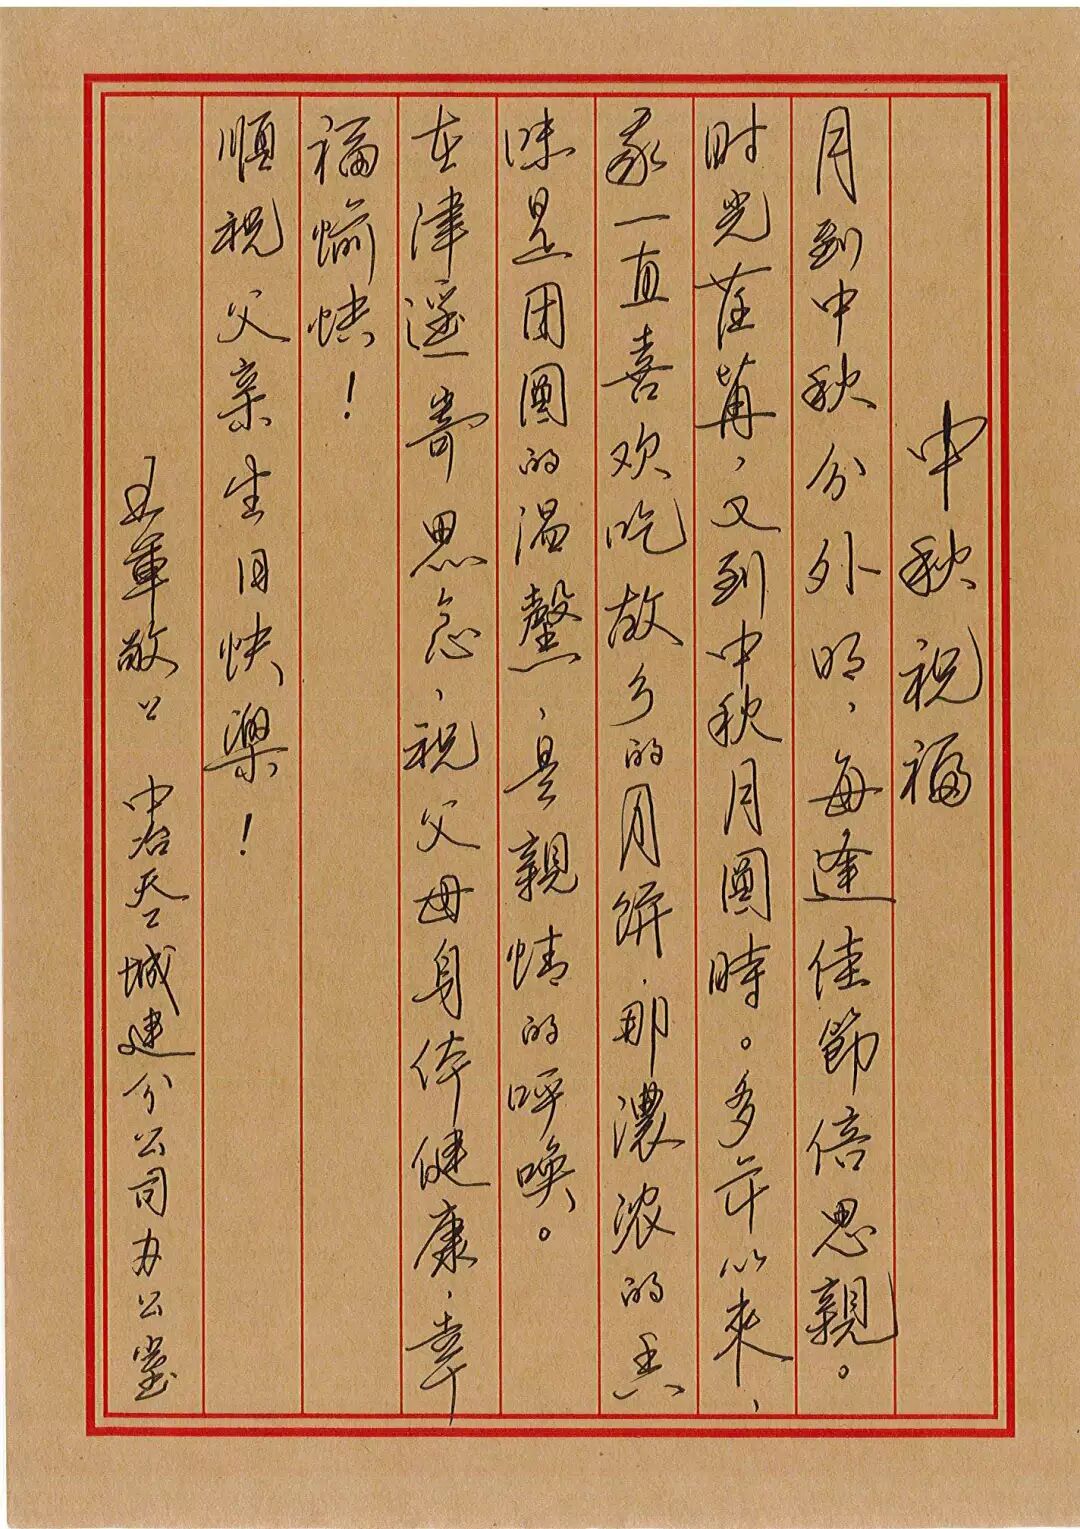 中秋祝福
月到中秋分外明，每逢佳節倍思親。
时光荏苒，又到中秋月圓時。多年以來，
我一直喜欢吃故乡的月餅，那濃浓的香
味是团圓的温馨，是親情的呼喚。
在津遥寄思念，祝父母身体健康，幸
福愉快！
順祝父亲生日快樂！
王軍敬上 中冶天工城建分公司办公室